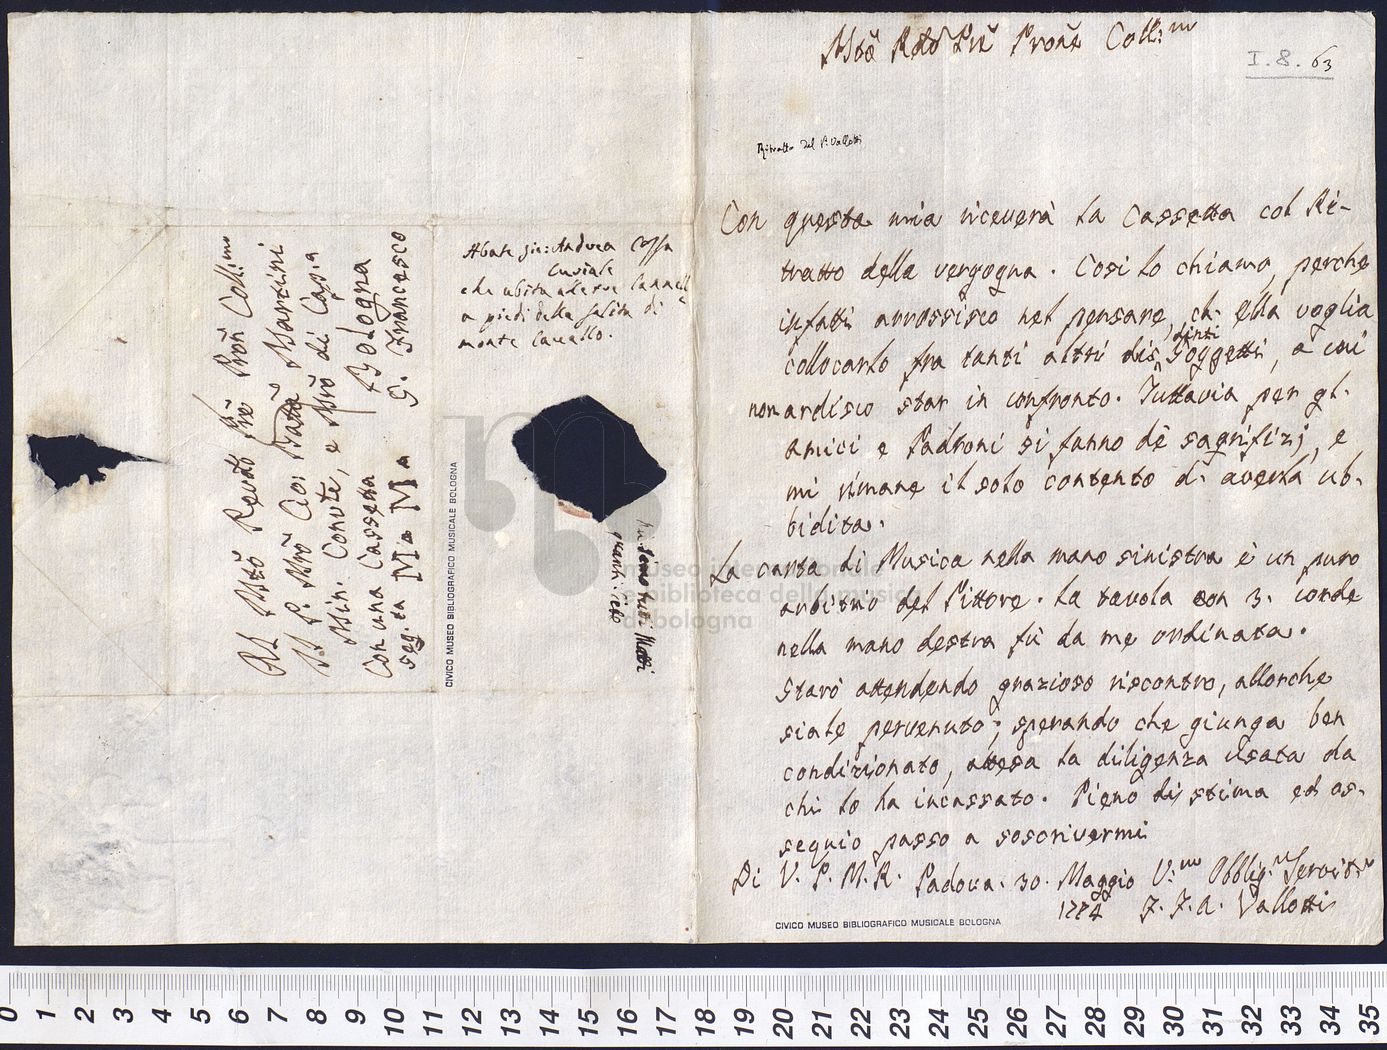 Mto Rdo Pre Prone Coll:mo
I. 8. 63
Ritratto del P. Vallotti
Con questa mia riceverà la Cassetta col Ri-
tratto della vergogna. Così lo chiamo, perchè
infatti arrossisco nel pensare, ch. ella voglia
collocarlo fra tanti altri distinti Soggetti, a cui
non ardisco star in confronto. Tuttavia per gl.
amici e Padroni si fanno dè sagrifizj, e
mi rimane il solo contento d. averla ub-
bidita.
La carta di Musica nella mano sinistra è un puro
arbitrio del Pittore. La tavola con 3. corde
nella mano destra fù da me ordinata.
Starò attendendo grazioso riscontro, allorche
siale pervenuto; sperando che giunga ben
condizionato, attesa la diligenza usata da
chi lo ha incassato. Pieno di stima ed os-
sequio passo a soscrivermi
Di V. P. M. R. Padova. 30. Maggio V.mo Obblig. Servit.
1774 F. F. A. Vallotti
CIVICO MUSEO BIBLIOGRAFICO MUSICALE BOLOGNA
Al Mto Revdo Pre Pron Coll:mo
Il P. Mro Gio: Batta Martini
Min. Convte, e Mro di Cap.a
Bologna
Con una Cassetta S. Francesco
seg.ta M a M a
CIVICO MUSEO BIBLIOGRAFICO MUSICALE BOLOGNA
Abate Gio: Andrea
che abita alle tre Cannelle
a piedi della salita di
monte Cavallo.
museo internazionale
e biblioteca della musica
di bologna
0 1 2 3 4 5 6 7 8 9 10 11 12 13 14 15 16 17 18 19 20 21 22 23 24 25 26 27 28 29 30 31 32 33 34 35